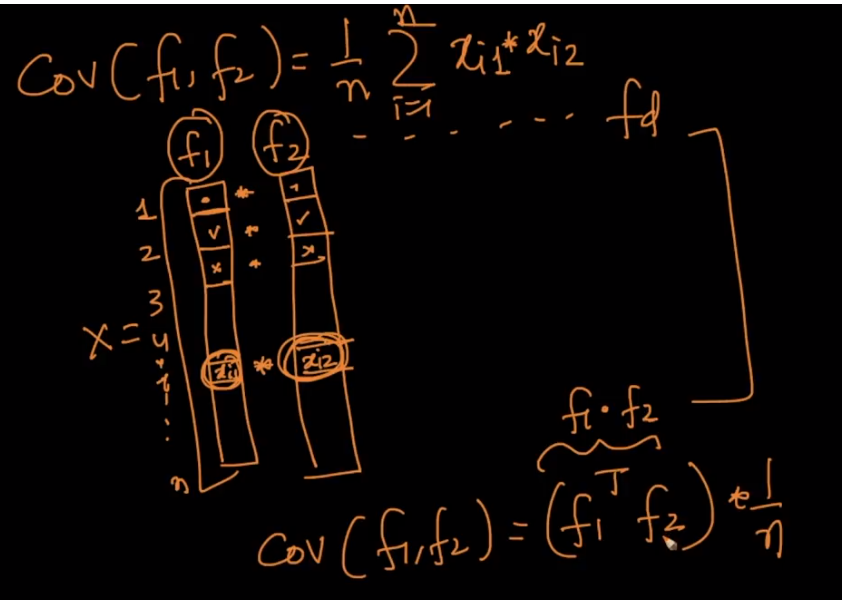 Cov(f₁, f₂) = 1/n Σ_{i=1}^{n} x_{i1} * x_{i2}
f₁ f₂ - - - - - - fd
1 • * •
2 ✓ * ✓
x * x
3
X = 4
x_{i1} * x_{i2}
n
f₁ · f₂
Cov(f₁, f₂) = (f₁ᵀ f₂) * 1/n